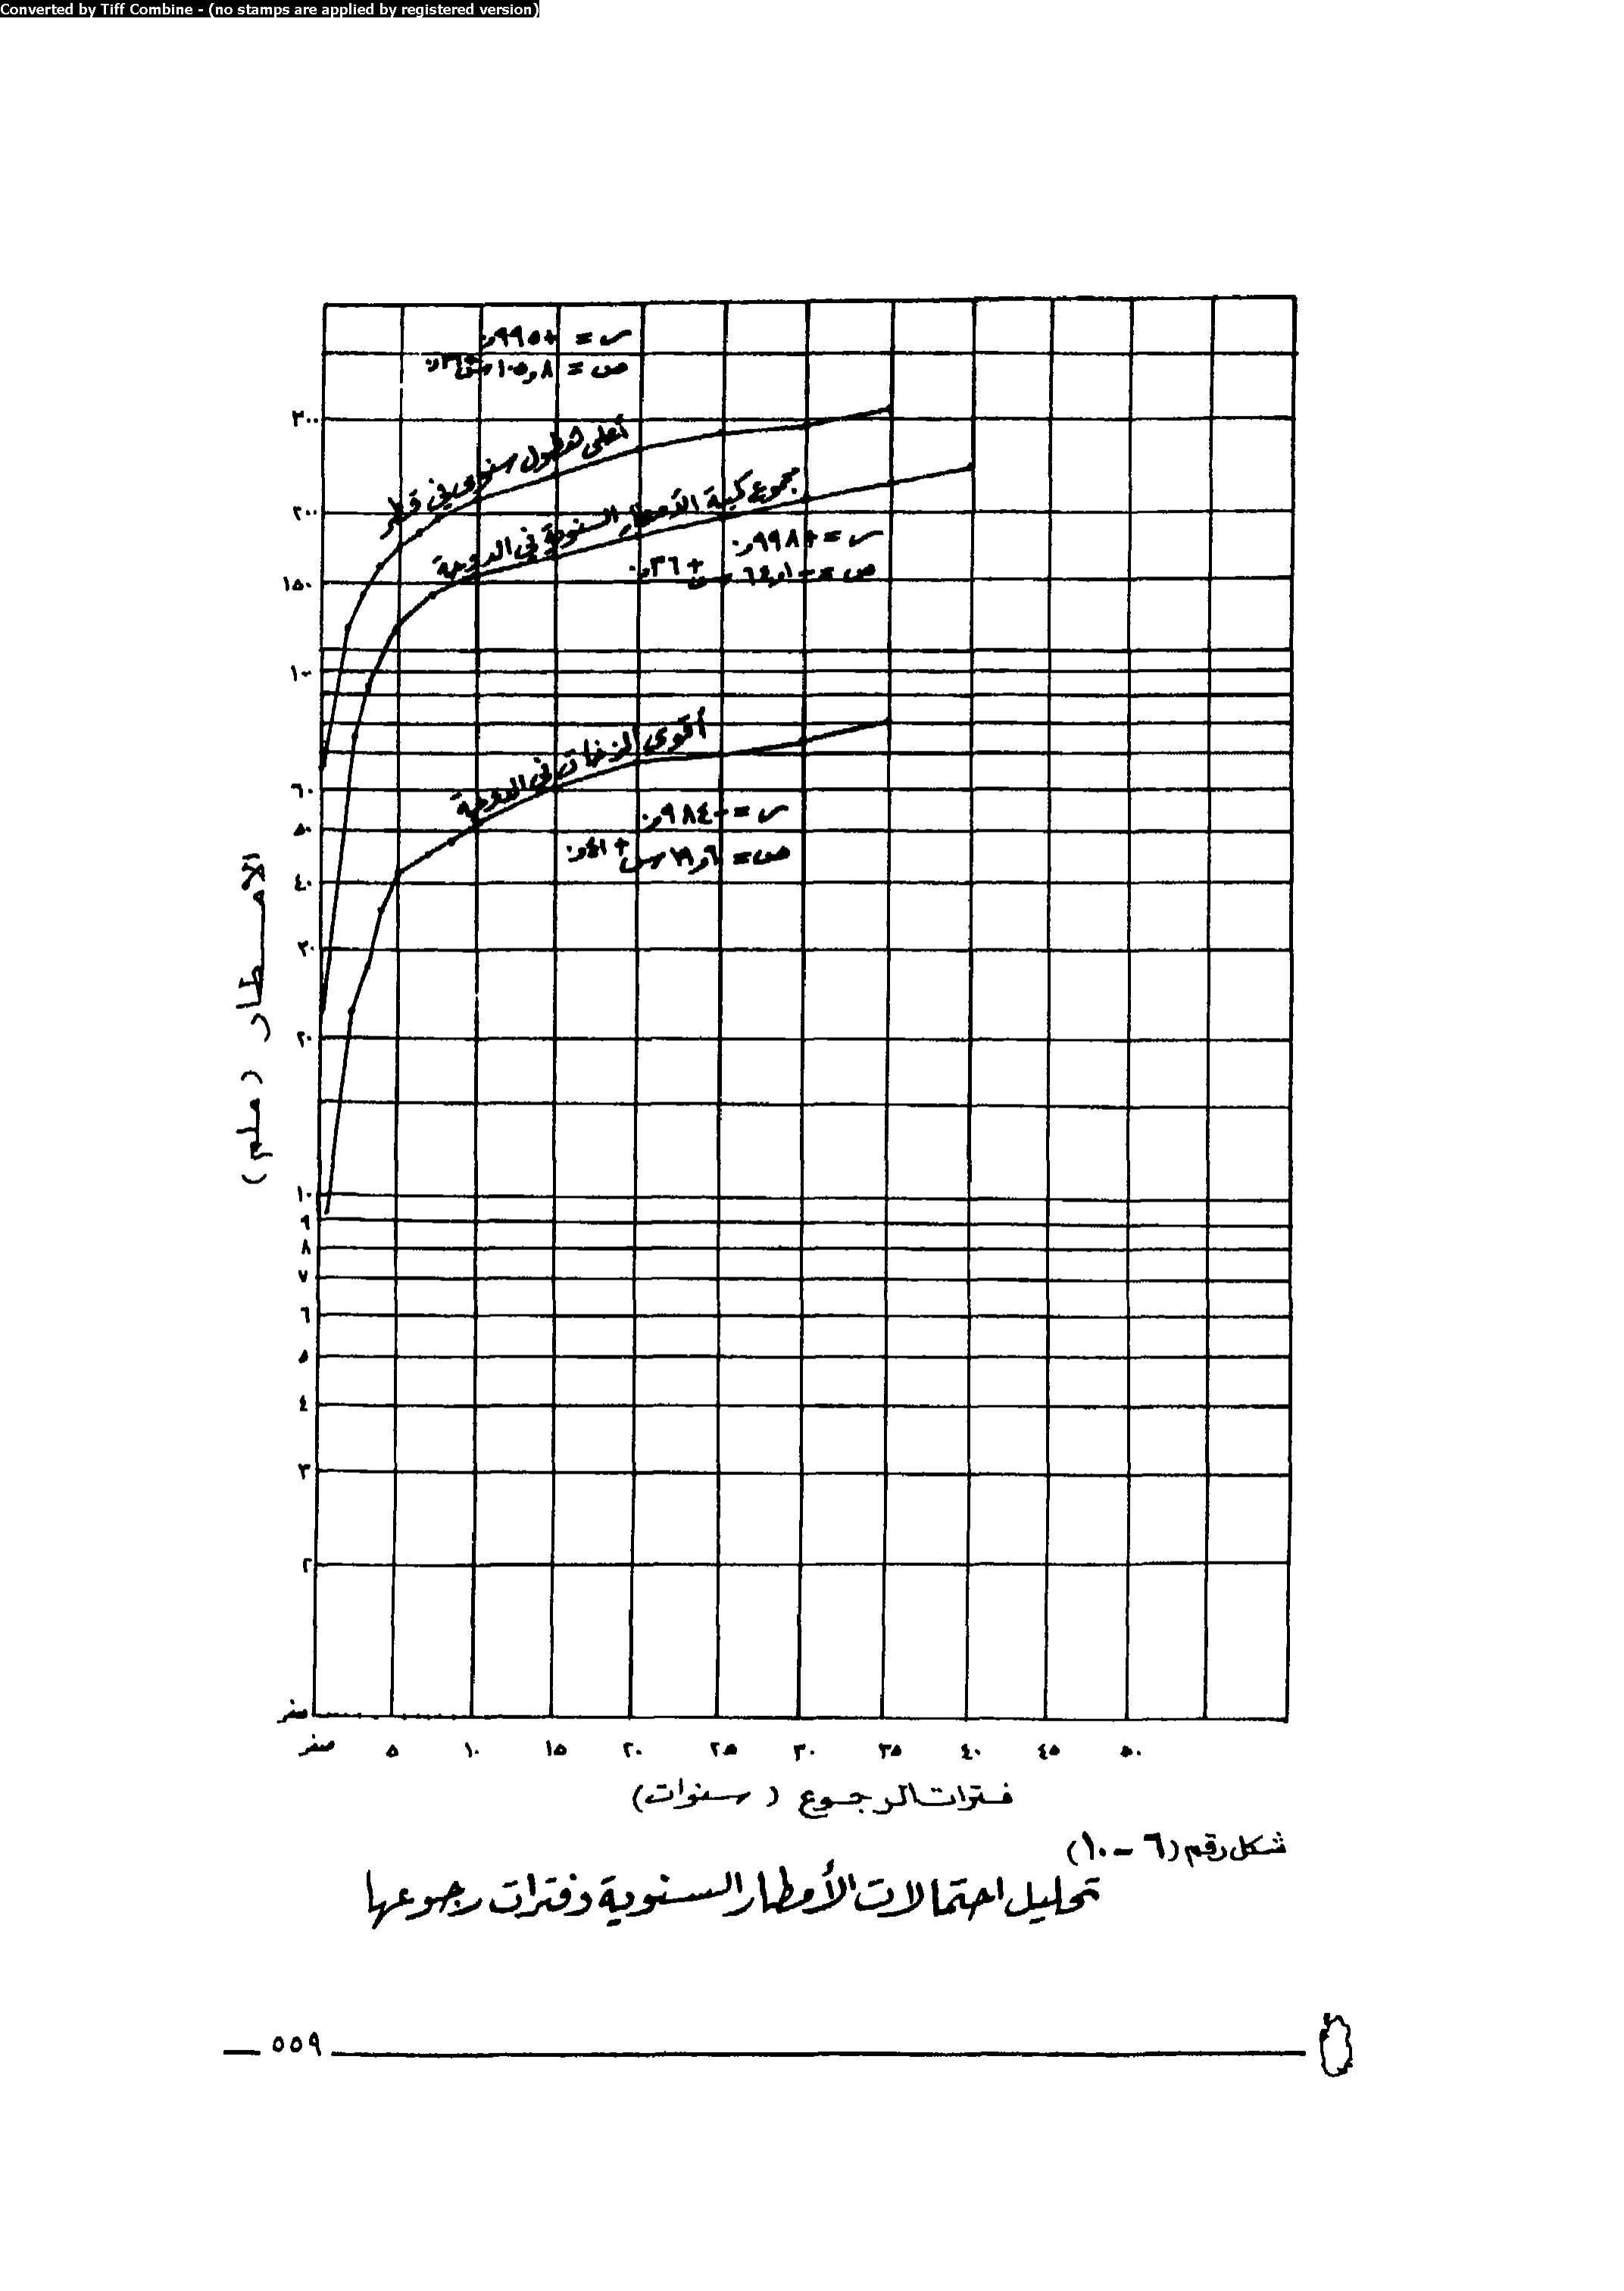 Converted by Tiff Combine - (no stamps are applied by registered version)
أعلى هطول سنوى فى قطر
مجموع كمية الأمطار السنوية فى الدوحة
أقوى الزخات فى الدوحة
٣٠٠
٢٠٠
١٥٠
١٠٠
٦٠
٥٠
٤٠
٣٠
٢٠
١٠
٩
٨
٧
٦
٥
٤
٣
٢
صفر
الأمطار (ملم)
صفر ٥ ١٠ ١٥ ٢٠ ٢٥ ٣٠ ٣٥ ٤٠ ٤٥ ٥٠
فترات الرجوع (سنوات)
شكل رقم (٦-١٠)
تحليل احتمالات الأمطار السنوية وفترات رجوعها
٥٥٩